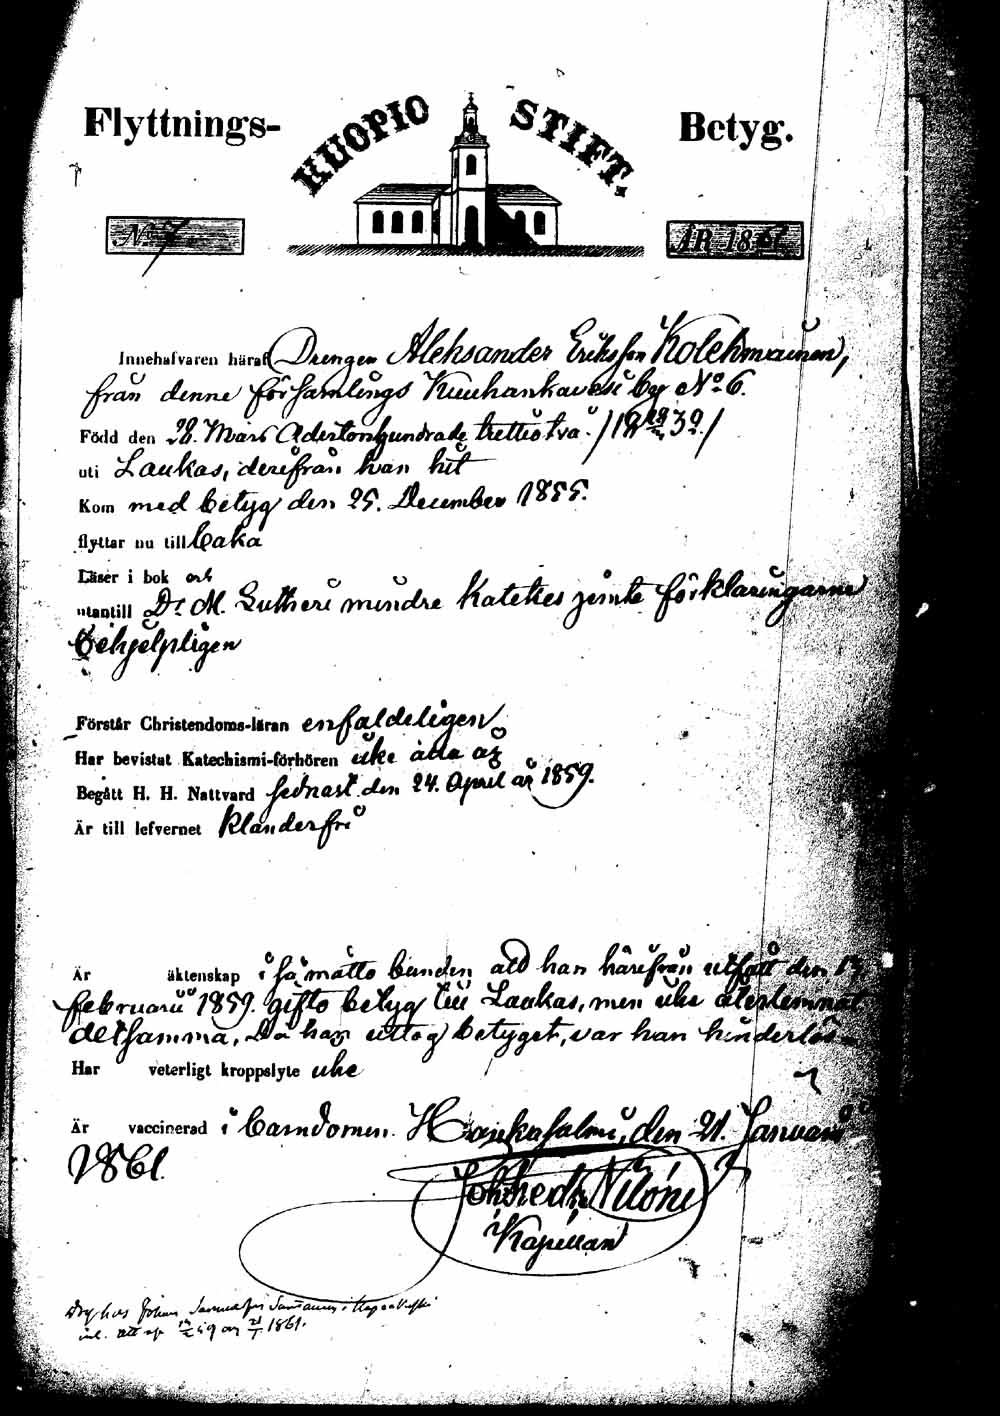 Flyttnings- KUOPIO STIFT. Betyg.
No 7 ÅR 1861.
Innehafvaren häraf Drengen Aleksander Eriksson Kolehmainen,
från denne församlings Kuuhankavesi by No 6.
Född den 28. Mars Adertonhundrade trettiotvå. /18 28/3 32./
uti Laukas, derifrån han hit
Kom med betyg den 25. December 1855.
flyttar nu till
Läser i bok och
utantill Dr. M. Lutheri mindre Katekes jemte förklaringarne
behjelpligen
Förstår Christendoms-läran enfaldeligen
Har bevistat Katechismi-förhören icke alla år
Begått H. H. Nattvard sednast den 24. April år 1859.
Är till lefvernet klanderfri
Är äktenskap i så måtto bunden att han härifrån uttagit den 17
februarii 1859. gifto betyg till Laukas, men icke återlemnat
detsamma, Då han uttog betyget, var han hinderlös.
Har veterligt kroppslyte icke
Är vaccinerad i barndomen. Hankasalmi, den 21. Januari
1861.
Kapellan
Johan
1861.